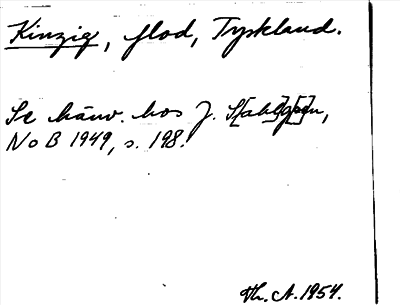 Kinzig, flod, Tyskland.
Se hänv. hos J. S[ahlg]ren,
NoB 1949, s. 198.
Th. A. 1954.